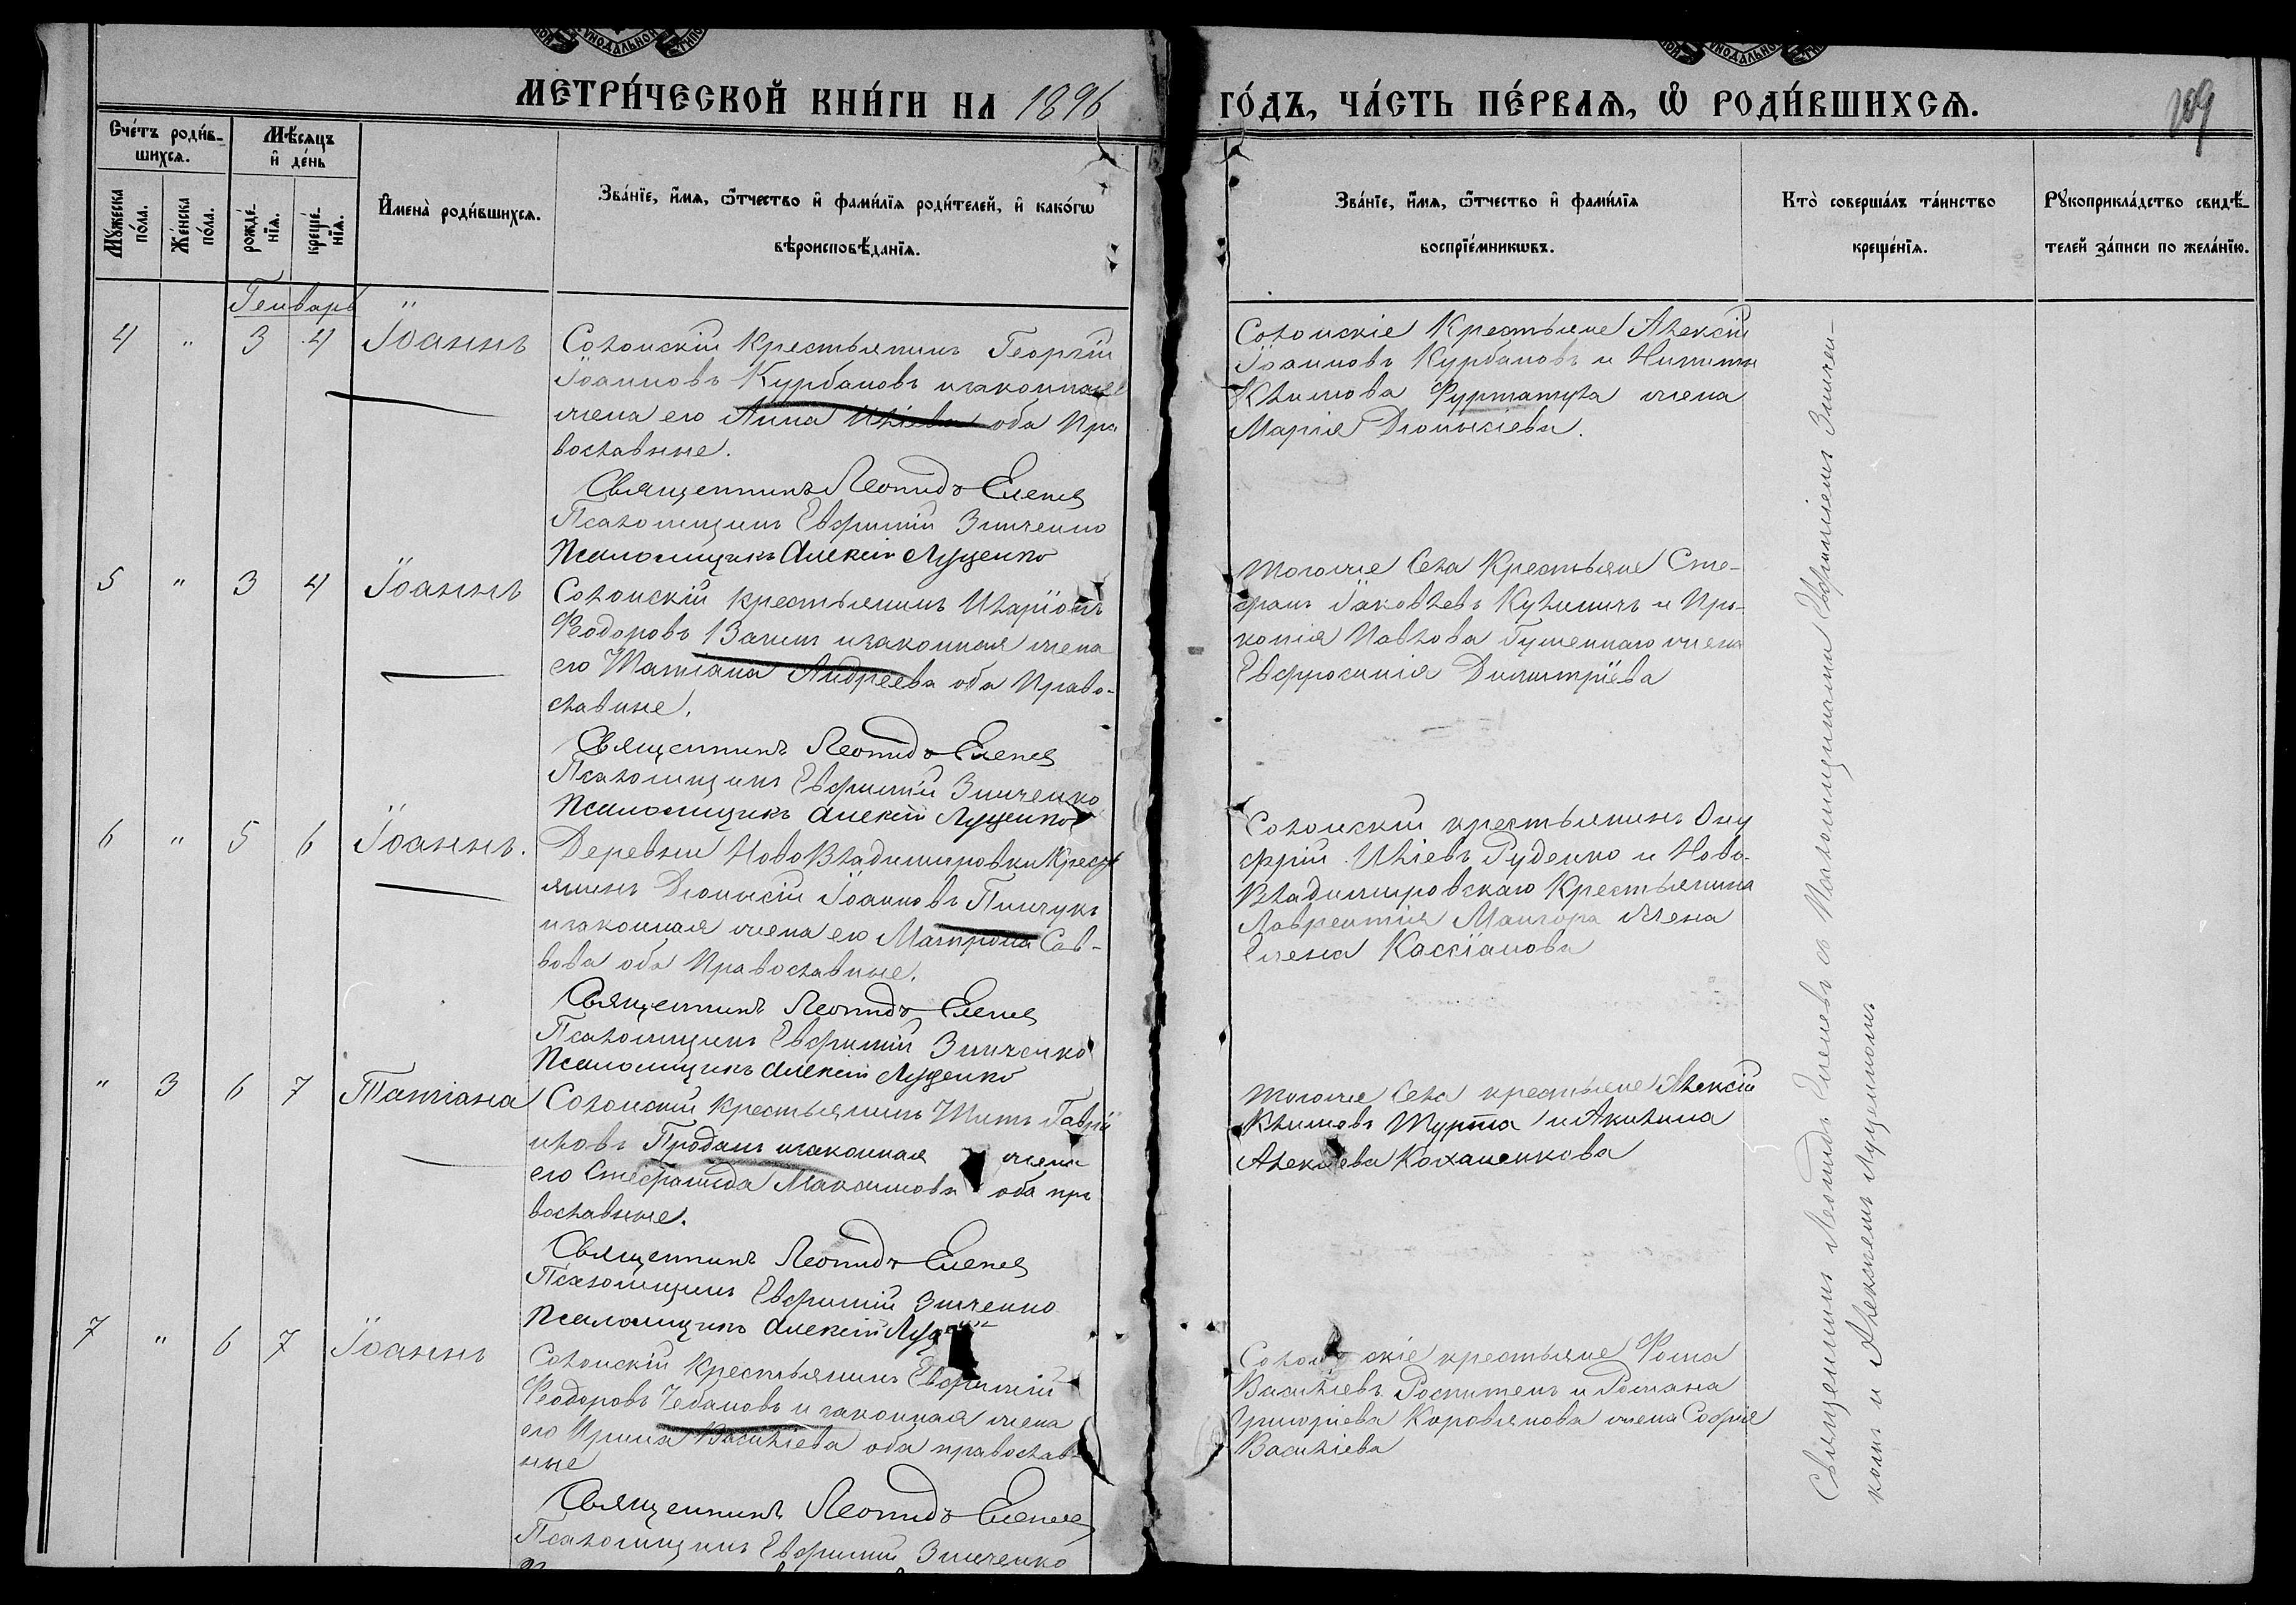 МЕТРИ́ЧЕСКОЙ КНИ́ГИ НА 1896
ГО́ДЪ, ЧА́СТЬ ПЕ́РВАѦ, Ѡ РОДИ́ВШИХСѦ.
209
Сче́тъ роди́в-
шихсѧ.
Мѣ́сѧцъ
и де́нь
Мꙋ́жеска
по́ла.
Же́нска
по́ла.
рожде́-
нїѧ.
креще́-
нїѧ.
Имена̀ роди́вшихсѧ.
Зва́нїе, и́мѧ, ѻ́тчество и фами́лїѧ роди́телей, и како́гѡ
вѣроисповѣ́данїѧ.
Зва́нїе, и́мѧ, ѻ́тчество и фами́лїѧ
воспрїе́мникѡвъ.
Кто̀ соверша́лъ та́инство
креще́нїѧ.
Рꙋкоприкла́дство свидѣ́-
телей за́писи по жела́нїю.
Генварь
4 " 3 4 Іоаннъ
Солонскій Крестьянинъ Георгій
Іоанновъ Курбановъ и законная
жена его Анна Иліева оба Пра
вославные.
Священникъ Леонидъ Еленев
Псаломщикъ Евфимій Зинченко
Псаломщикъ Алексій Луценко
Солонскіе Крестьяне Алексій
Іоанновъ Курбановъ и Никиты
Климова Фуртатуга жена
Марія Діонисіева.
5 " 3 4 Іоаннъ
Солонскій крестьянинъ Иларіонъ
Феодоровъ и законная жена
его Татіана Андреева оба Право-
славные.
Священникъ Леонидъ Еленев
Псаломщикъ Евфимій Зинченко
Псаломщикъ Алексій Луценко
Тогоже Села Крестьяне Сте-
фанъ Іаковлевъ и Про-
копія Павлова жена
Евфросинія Димитріева
6 " 5 6 Іоаннъ.
Деревни НовоВладимировки Кресть
янинъ Діонисій Іоанновъ Пинчукъ
и законная жена его Матрона Сав-
вова оба Православные.
Священникъ Леонидъ Еленев
Псаломщикъ Евфимій Зинченко
Псаломщикъ Алексій Луценко
Солонскій крестьянинъ Ону
фрій Иліевъ Руденко и Ново-
Владимировскаго Крестьянина
Лаврентія жена
Елена Кассіанова
" 3 6 7 Татіана
Солонскій Крестьянинъ Титъ Гаврі
иловъ Проданъ и законная жена
его Стефанида Максимова оба пра
вославные.
Священникъ Леонидъ Еленев
Псаломщикъ Евфимій Зинченко
Псаломщикъ Алексій
Тогоже Села крестьяне Алексій
Климовъ Турта и Акилина
Алексіева Коханенкова
7 " 6 7 Іоаннъ
Солонскій Крестьянинъ Евфимій
Феодоровъ Чебановъ и законная жена
его Ирина Василіева оба православ-
ные
Священникъ Леонидъ Еленев
Псаломщикъ Евфимій Зинченко
Солонскіе крестьяне Фома
Василіевъ и Романа
Григоріева Коровякова жена Софія
Василіева
Священникъ Леонидъ Еленевъ съ Псаломщиками Евфиміемъ Зинчен-
комъ и Алексіемъ Луценкомъ